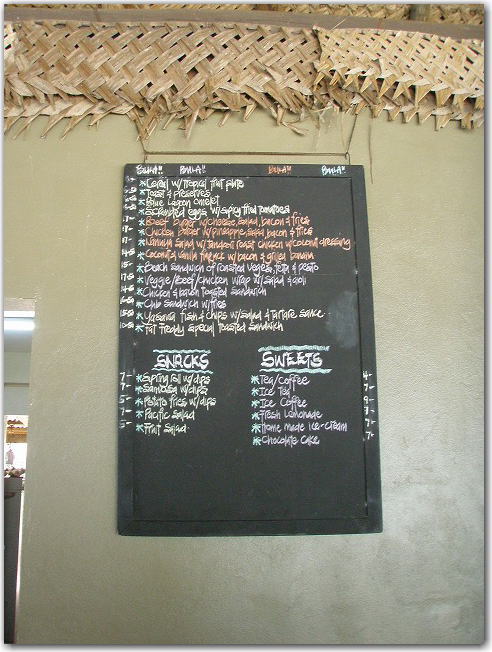 BULA!! BULA!! BULA!! BULA!!
*Cereal w/ tropical fruit plate
*Toast & preserves
*Blue Lagoon omelet
*Scrambled eggs w/ spicy fried tomatoes
*Beef burger w/ cheese, salad, bacon & fries
*Chicken burger w/ pineapple, salad, bacon & fries
*Nanuya Salad w/ tandoori roast chicken w/ coconut dressing
*Coconut & vanilla w/ bacon & grilled banana
*Beach sandwich of roasted veges, feta & pesto
*Veggie/Beef/chicken wrap w/ salad & aioli
*Chicken & bacon toasted sandwich
*Club sandwich w/ fries
*Yasawa fish & chips w/ salad & tartare sauce
*Fat Freddy special toasted sandwich
SNACKS
7- *Spring roll w/ dips
7- *Samosa w/ dips
5- *Potato fries w/ dips
7- *Pacific Salad
5- *Fruit Salad
SWEETS
*Tea/Coffee 4-
*Ice Tea 7-
*Ice Coffee 9-
*Fresh Lemonade 7-
*Home made ice-cream 7-
*Chocolate Cake 7-